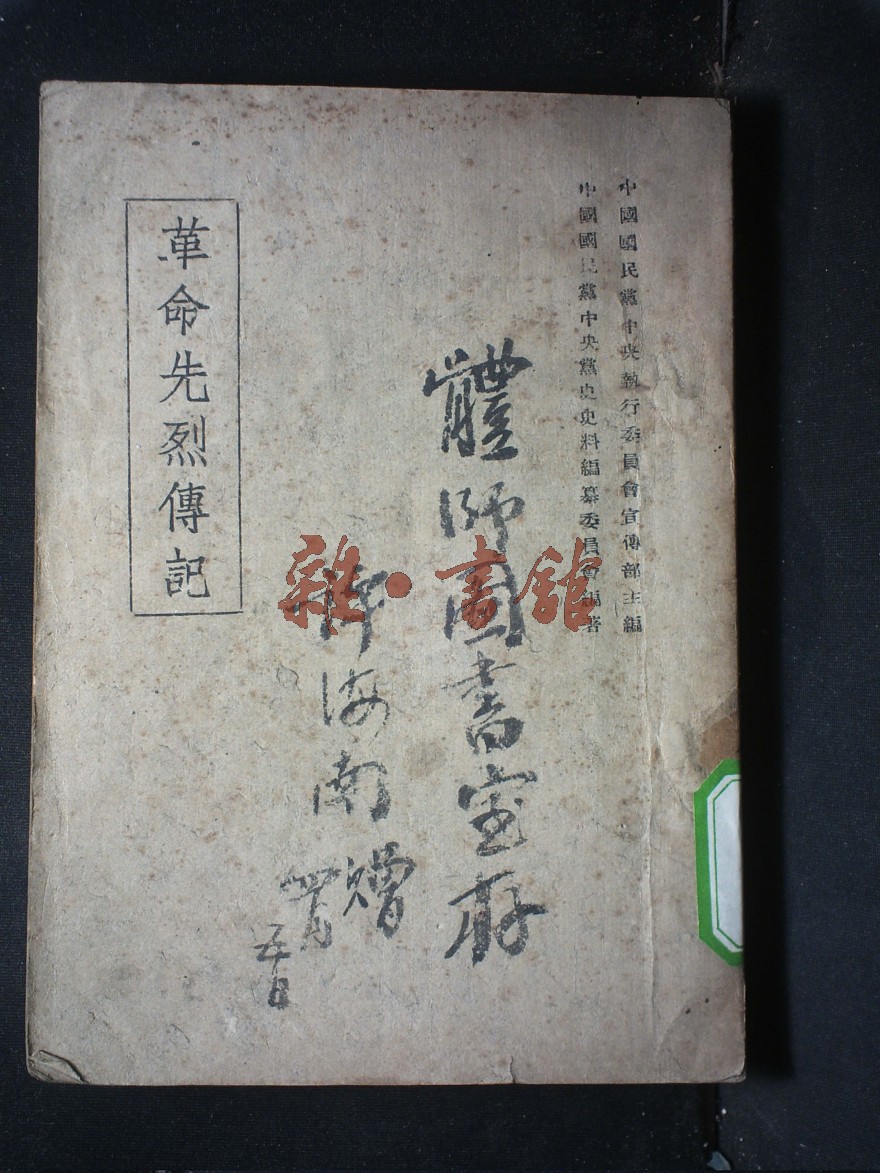 中國國民黨中央執行委員會宣傳部主編
中國國民黨中央黨史史料編纂委員會編著
體師圖書室存
海南贈
革命先烈傳記
雜·書館